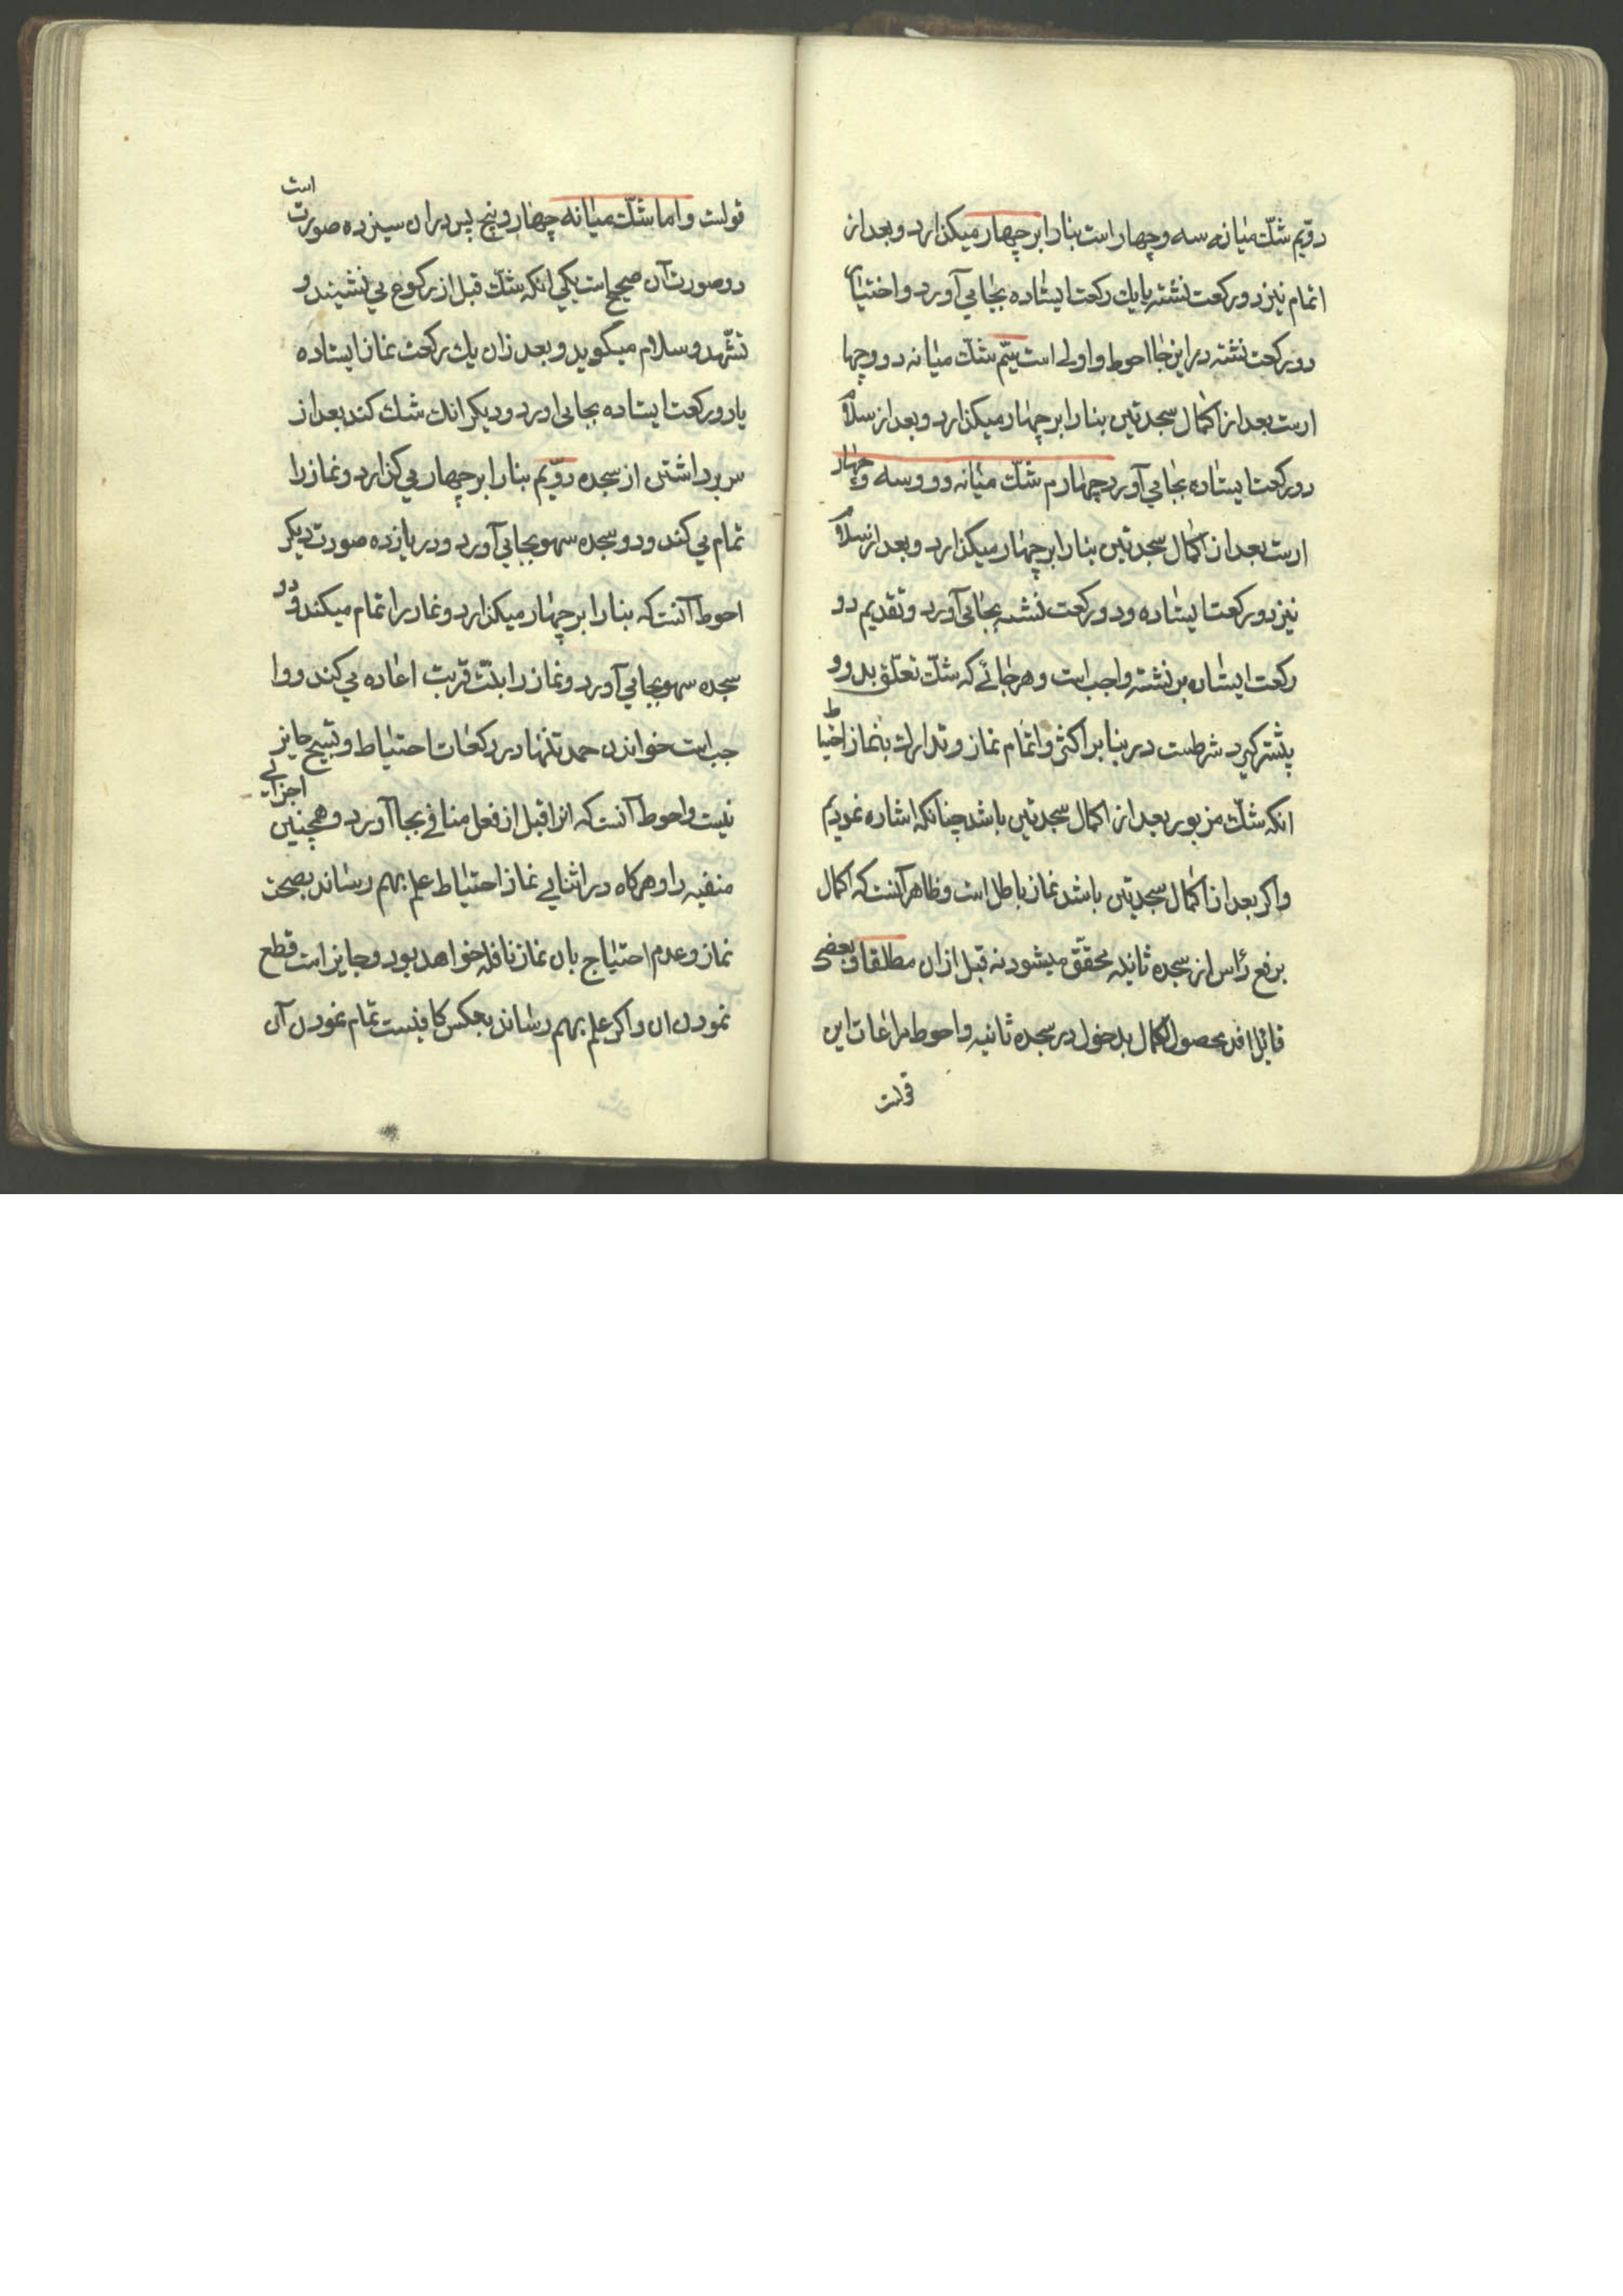 دویّم شكّ میانه سه و چهار است بنا را بر چهار میکذارد و بعد از
اتمام نیز دو رکعت نشسته یا یك رکعت ایستاده بجا می آورد و اختیار
دو رکعت نشته در این جا احوط و اولی است سیّم شكّ میانه دو و چها
ر است بعد از اکمال سجدتین بنا را بر چهار میکذارد و بعد از سلام
دو رکعت ایستاده بجا می آورد چهارم شكّ میانه دو و سه و چهار
ا ست بعد از اکمال سجدتین بنا را بر چهار میکذارد و بعد از سلام
نیز دو رکعت ایستاده و دو رکعت نشسته بجا می آورد و تقدیم دو
رکعت ایستاده بر نشسته واجب است و هر جائے که شكّ تعلّق بدو و
پیشتر کیرد شرطست در بنا بر اکثر و اتمام نماز و تدارك بنماز احتیاط
انکه شكّ مزبور بعد از اکمال سجدتین باشد چنانکه اشاره نمودیم
و اکر بعد از اکمال سجدتین باشد نماز باطل است و ظاهر آنست که اکمال
برفع رأس از سجده ثانیه محقّق میشود نه قبل از ان مطلقا و بعضی
قائل اند بحصول اکمال بدخول در سجده ثانیه و احوط مراعات این
قولست
قولست و اما شكّ میانه چهار و پنج پس در ان سیزده صورت است
دو صورت آن صحیح است یکی انکه شكّ قبل از رکوع می نشیند و
تشّهد و سلام میکوید و بعد زان یك رکعت نماز ایستاده
یا دو رکعت ایستاده بجا می اورد و دیکر انك شك کند بعد از
سر برداشتن از سجده دویّم بنا را بر چهار می کذارد و نماز را
تمام می کند و دو سجده سهو بجا می آورد و در یازده صورت دیکر
احوط آنست که بنا را بر چهار میکذارد و نماز را تمام میکند و دو
سجده سهو بجا می آورد و نماز را بنیّت قربت اعاده می کند و وا
جب است خواندن حمد تنها در رکعات احتیاط و تسبیح جایز
نیست و احوط آنست که انرا قبل از فعل منافی بجا آورد و همچنین اجزای
منفیه را و هر کاه در اثنای نماز احتیاط علم بهم رساند بصحت
نماز و عدم احتیاج بان نماز نافله خواهد بود و جایز است قطع
نمودن ان و اکر علم بهم رساند بعکس کافیست تمام نمودن آن